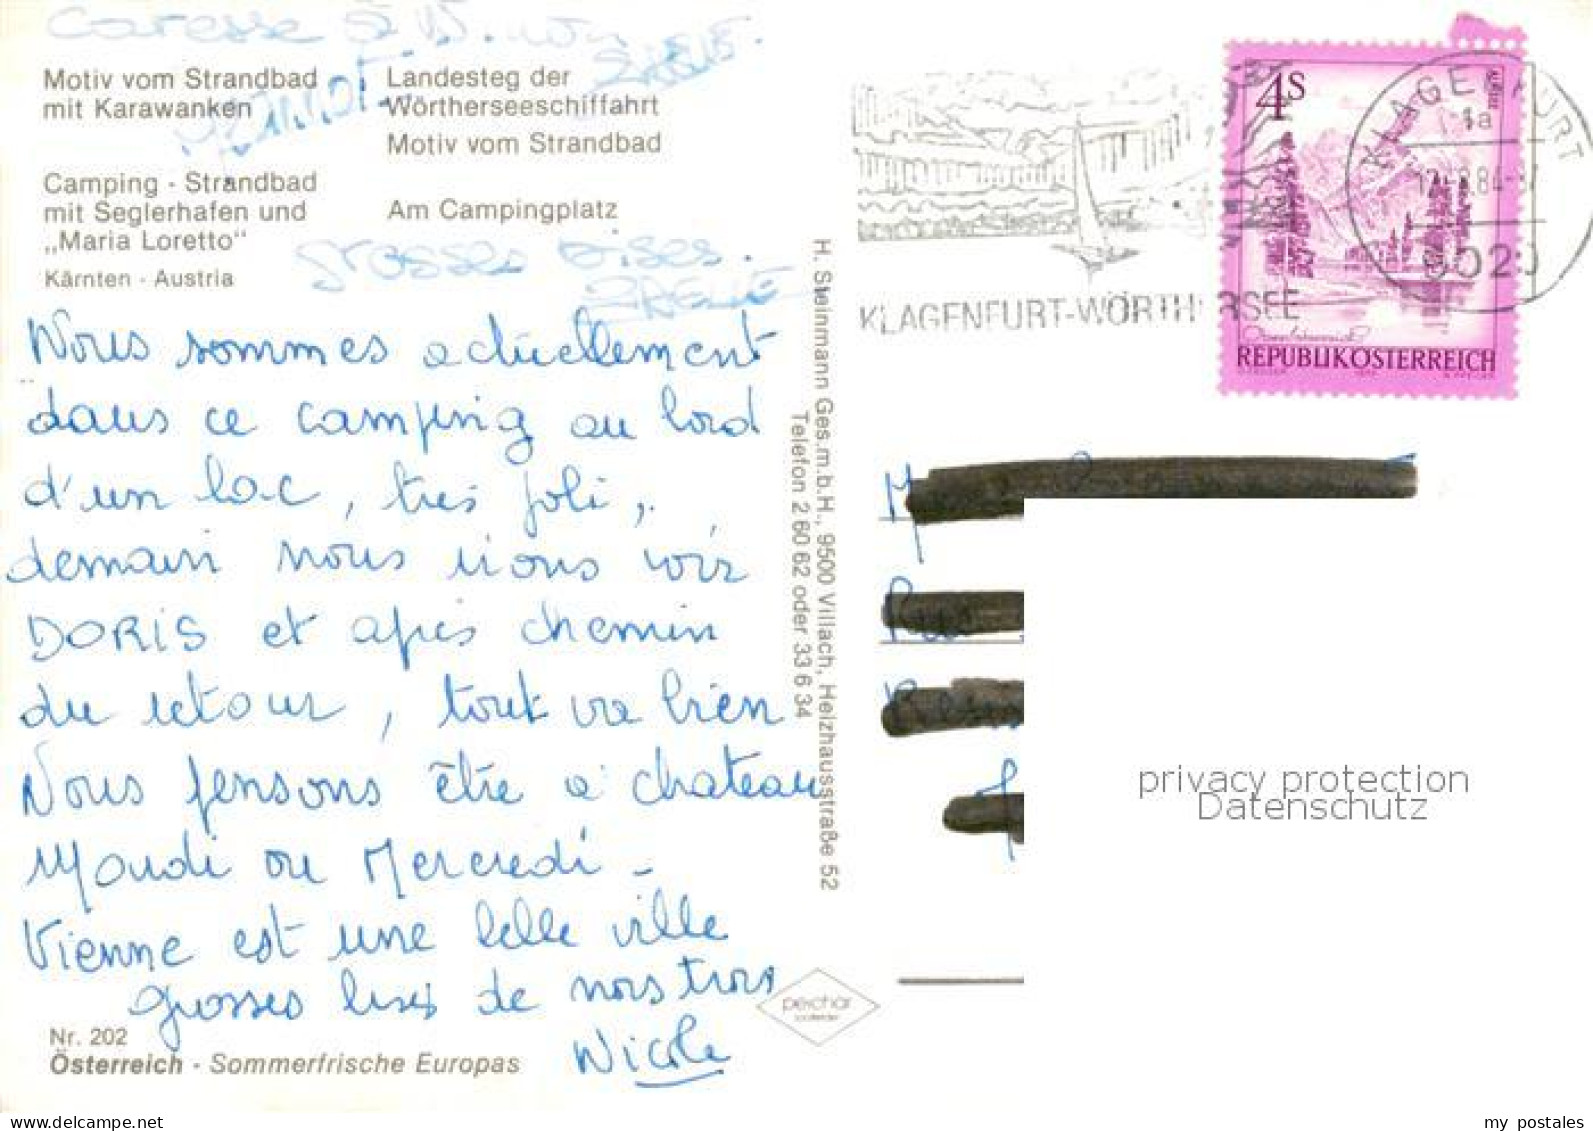 Caresse à
Motiv vom Strandbad
mit Karawanken
Landesteg der
Wörtherseeschiffahrt
Motiv vom Strandbad
Camping - Strandbad
mit Seglerhafen und
„Maria Loretto"
Am Campingplatz
Kärnten - Austria
grosses bises.
Nous sommes actuellement
dans ce camping au bord
d'un lac, très joli,
demain nous irons voir
DORIS et après chemin
du retour, tout va bien
Nous pensons être à chateau
Mardi ou Mercredi -
Vienne est une belle ville
grosses bises de nous trois
Nicole
Nr. 202
Österreich - Sommerfrische Europas
H. Steinmann Ges.m.b.H., 9500 Villach, Heizhausstraße 52
Telefon 2 60 62 oder 33 6 34
peichar
KLAGENFURT-WÖRTHERSEE
4S
ALMSEE
REPUBLIK ÖSTERREICH
KLAGENFURT
1a
9020
M
privacy protection
Datenschutz
my postales